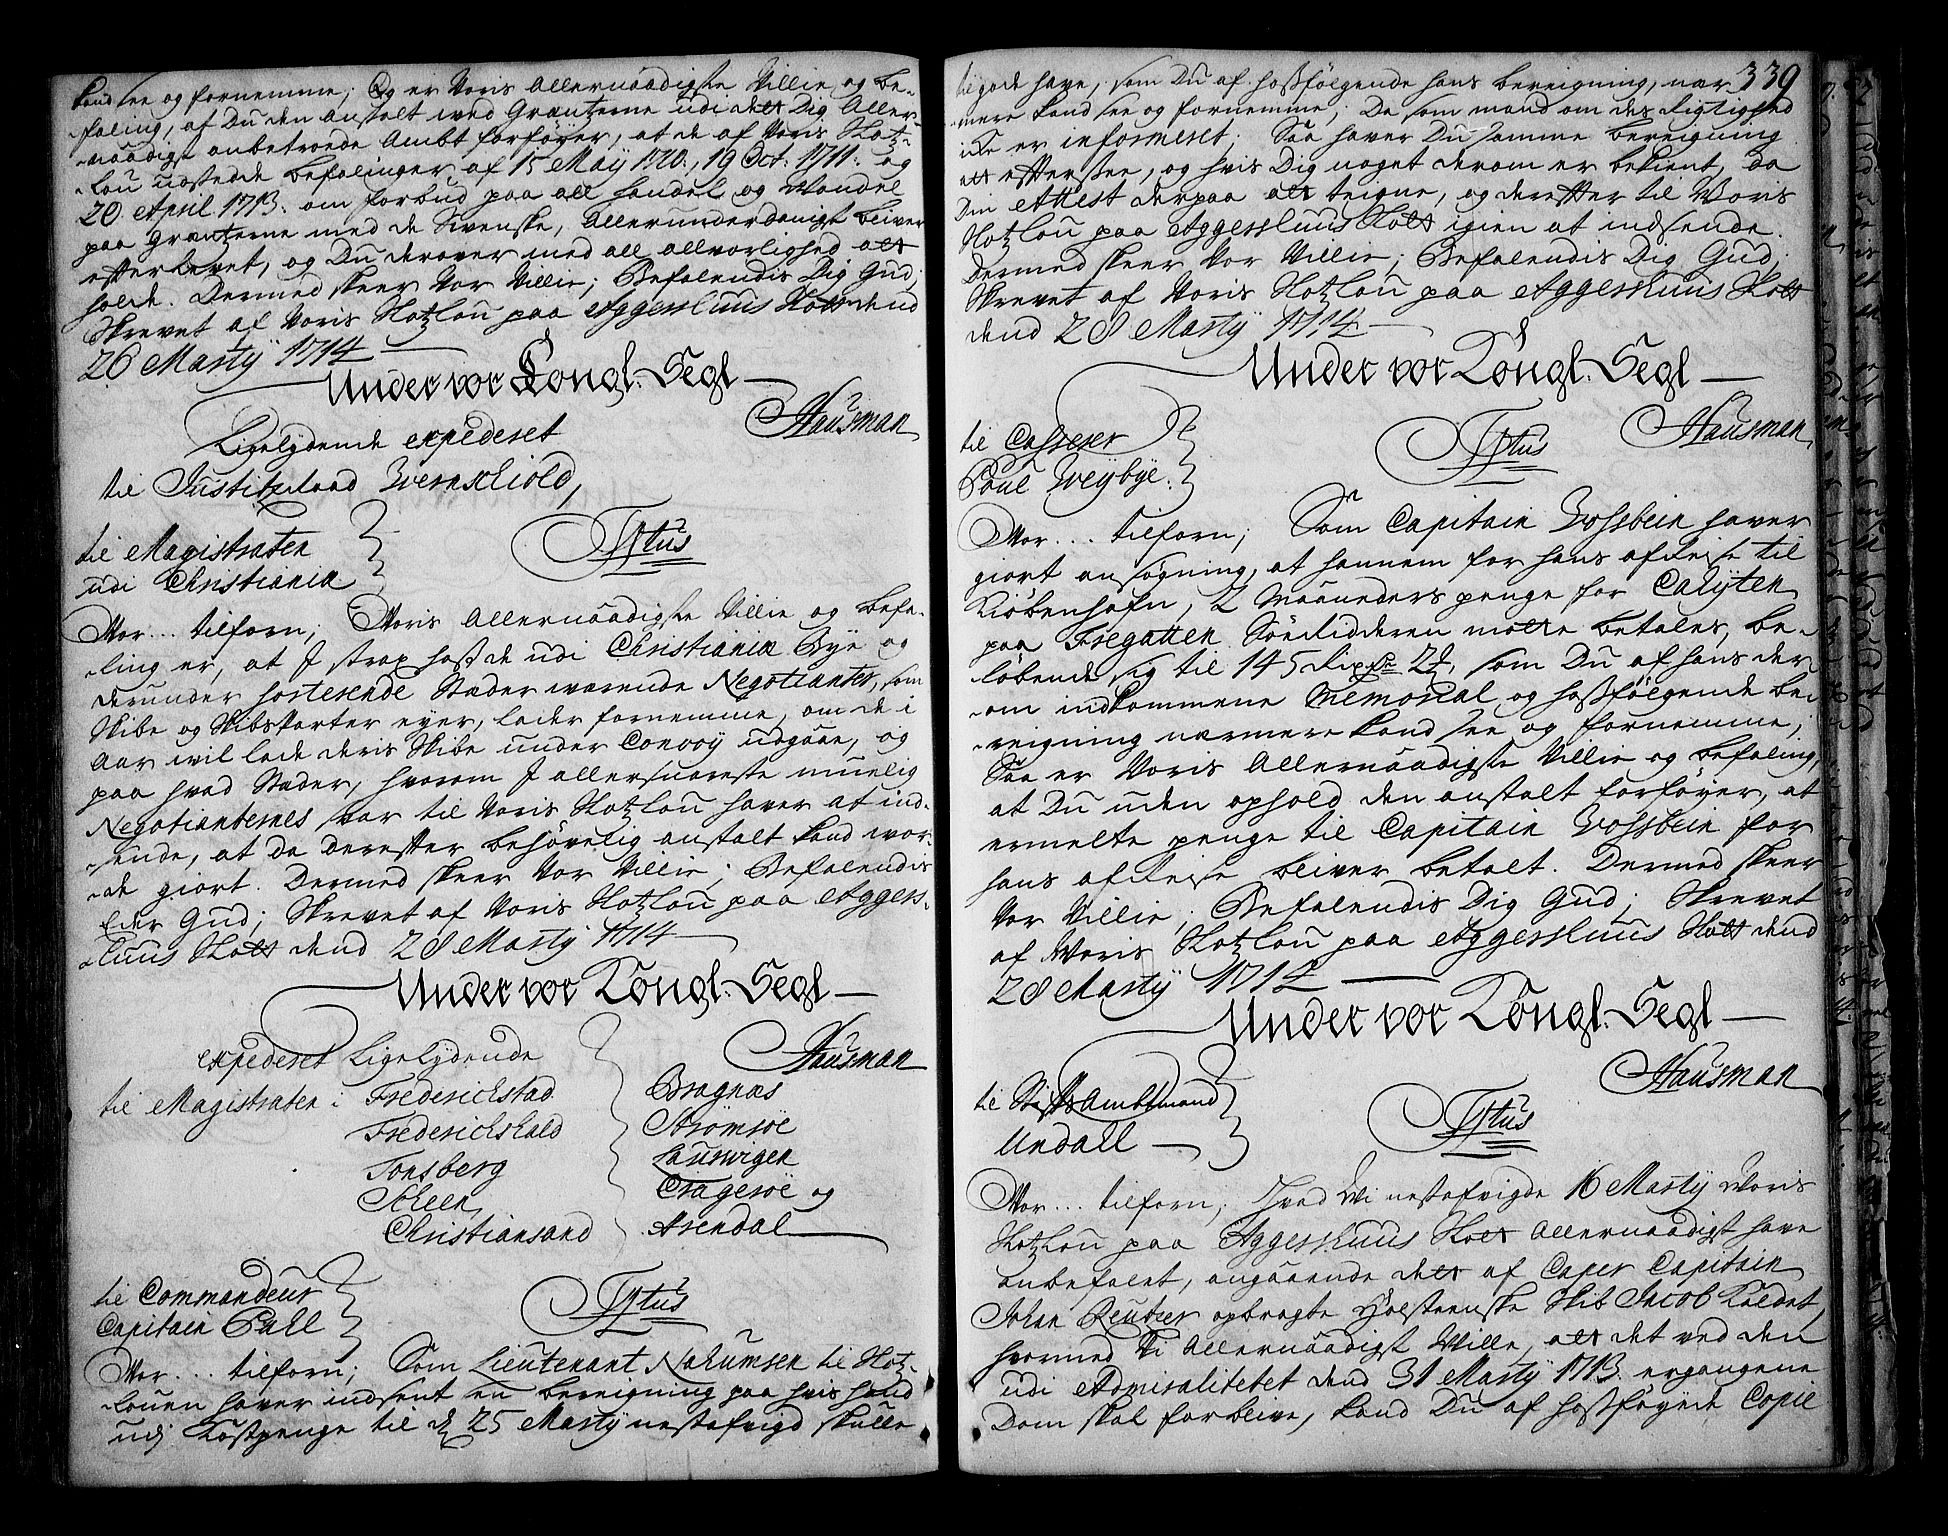 kand see og fornemme; Og er Voris Allernaadigste Villie og be-
-faling, at Du den anstalt wed Græntzerne udi det Dig Aller-
-naadigst anbetroede Ambt forføyer, at de af Voris Slotz-
-Lou udstedde befalinger af 15 Maÿ 1710, 19 Oct: 1711. og
20 April 1713. om forbud paa all handel og Vandel
paa Græntzerne med de Svenske, Allerunderdanigst bliver
efterlevet, og Du derover med all allvorlighed alt
holde. Dermed skeer Vor Villie; Befalendis Dig Gud;
Skrevet af Voris Slotzlou paa Aggershuus Slott dend
26 Martÿ 1714
Under vor Kongl. Segl
Hausman
Ligelydende expederet
til Justitzraad Wernschiold,
til Magistraten
udi Christiania
Wor... tilforn; Voris Allernaadigste Villie og befa-
ling er, at I strax hos de udi Christiania Bye og
derunder sorterende Stæder værende Negotianter, som
Skibe og Skibsparter eyer, lader fornemme, om de i
Aar vil lade deris Skibe under Convoÿ udgaae, og
paa hvad Stæder, hvorom I allersnareste muelig
Negotianternes svar til Voris Slotzlou haver at ind-
-sende, at da derefter behøvelig anstalt kand vor-
-de giort. Dermed skeer Vor Villie; Befalendis
Eder Gud; Skrevet af Voris Slotzlou paa Aggers-
-huus Slott dend 28 Martÿ 1714
Under vor Kongl. Segl
Hausman
expederet Ligelydende
til Magistraten i Frederichstad Bragnæs
Frederichshald Strømsøe
Tonsberg Laurwigen
Scheen Cragerøe og
Christiansand Arendal
til Commandeur
Capitain Pall
Wor... tilforn; Som Lieutenant Nahumsen til Slotz-
-Louen haver indsent en bereigning paa hvis hand
udj Kostpenge til d 25 Martÿ nestafvigd skulle
339
tilgode have, som Du af hosfølgende hans bereigning, nær-
-mere kand see og fornemme; Da som mand om des Rigtighed
icke er informeret; Saa haver Du samme bereigning
at eftersee, og hvis Dig noget derom er bekient, da
Din Attest derpaa at teigne, og derefter til Voris
Slotzlou paa Aggershuus Slott igien at indsende.
Dermed skeer Vor Villie; Befalendis Dig Gud;
Skrevet af Voris Slotzlou paa Aggershuus Slott
dend 28 Martÿ 1714
Under vor Kongl. Segl
Hausman
til Casserer
Poul Weybye.
Wor... tilforn; Som Capitain Vosbein haver
giort ansøgning, at hannem for hans afReise til
Kiøbenhafn, 2 Maaneders penge for Cahÿten
paa Fregatten Søe Ridderen motte betales, be-
løbende sig til 145 Rixdr 2, som Du af hans der-
-om indkommene Memorial og hosfølgende be-
-reigning nærmere kand see og fornemme;
Saa er Voris Allernaadigste Villie og befaling,
at Du uden ophold den anstalt forføyer, at
ermelte penge til Capitain Vosbein for
hans afReise bliver betalt. Dermed skeer
Vor Villie; Befalendis Dig Gud; Skrevet
af Voris Slotzlou paa Aggershuus Slott dend
28 Martÿ 1714
Under vor Kongl. Segl
Hausman
til Stifts Ambtmand
Undall
Wor... tilforn; Hvad Vi nestafvigde 16 Martÿ Voris
Slotzlou paa Aggershuus Slott Allernaadigst have
anbefalet, angaaende det af Caper Capitain
Johan Reutzer opbragte Holsteenske Skib Jacob kaldet,
hvormed Vi Allernaadigst Ville, at det ved den
udi Admiralitetet dend 31 Martÿ 1713. ergangene
Dom skal forblive, kand Du af hosføyede Copie